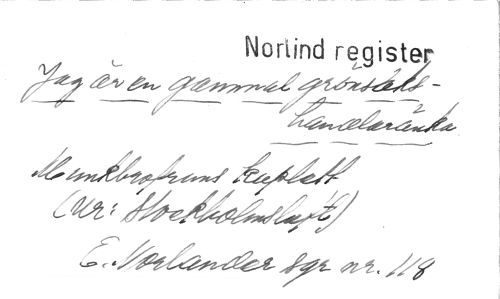 Norlind register
Jag är en gammal grönsaks-
handlaränka
Munkbrofruns kuplett
(ur: Stockholmsluft)
E. Norlander sgr nr. 118